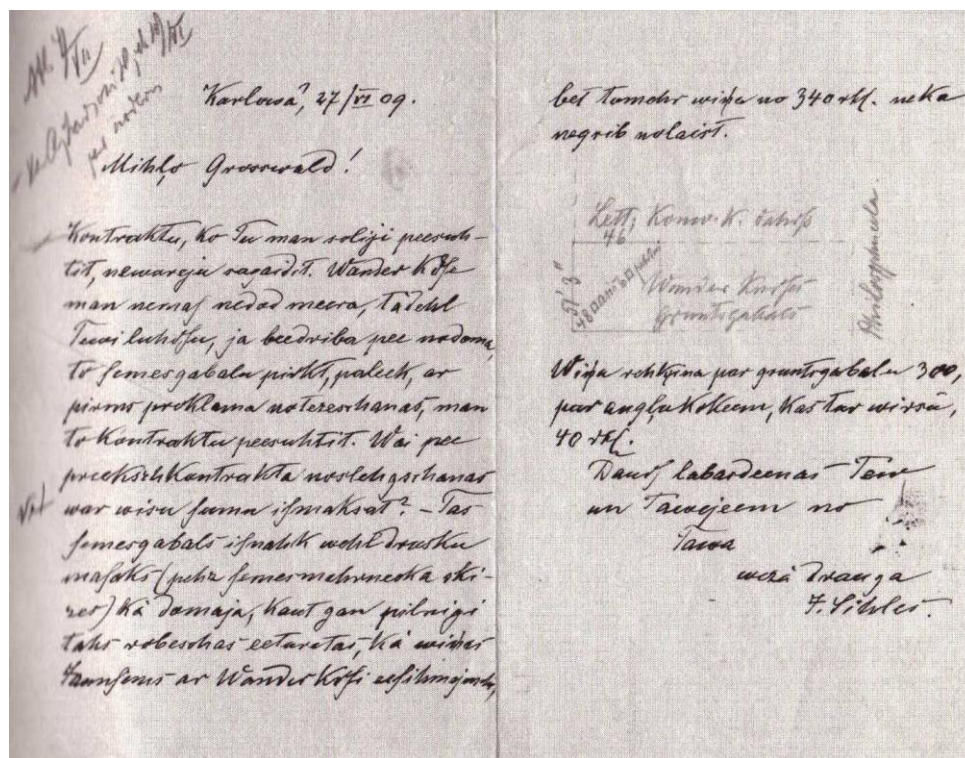 Karlowâ, 27/VI 09.
Mihļo Grosswald!
Kontraktu, ko Tu man soliji peesuh-
tit, newareju sagaidit. Wander Kdse
man nemas nedod meera, tadehl
Tewi luhdsu, ja beedriba pee nodoma,
to semesgabalu pirkt, paleek, ar
pirms proklama notezeschanas, man
to Kontraktu peesuhtit. Wai pee
preekschkontrakta noslehgschanas
war wisu sumu ismaksat? – Tas
semesgabals isnahk wehl drusku
masaks (pehz semesmehrneeka ski-
zes) kâ domaja, kaut gan pilnigi
tahs robeschas eeturetas, kâ wiņas
ar Wander Kdsi
bet tomehr wiņa no 340 rbl. neka
negrib nolaist.
Lett, Konw. K. dahrs
46
57' 3"
48
Wander Kundses
gruntsgabals
Wiņa rehķina par gruntsgabalu 300,
par augļu kokeem, kas tur wirsū,
40 rbl.
Daudz labasdeenas Tew
un Tawejeem no
Tawa
wezâ drauga
J. Sihles.